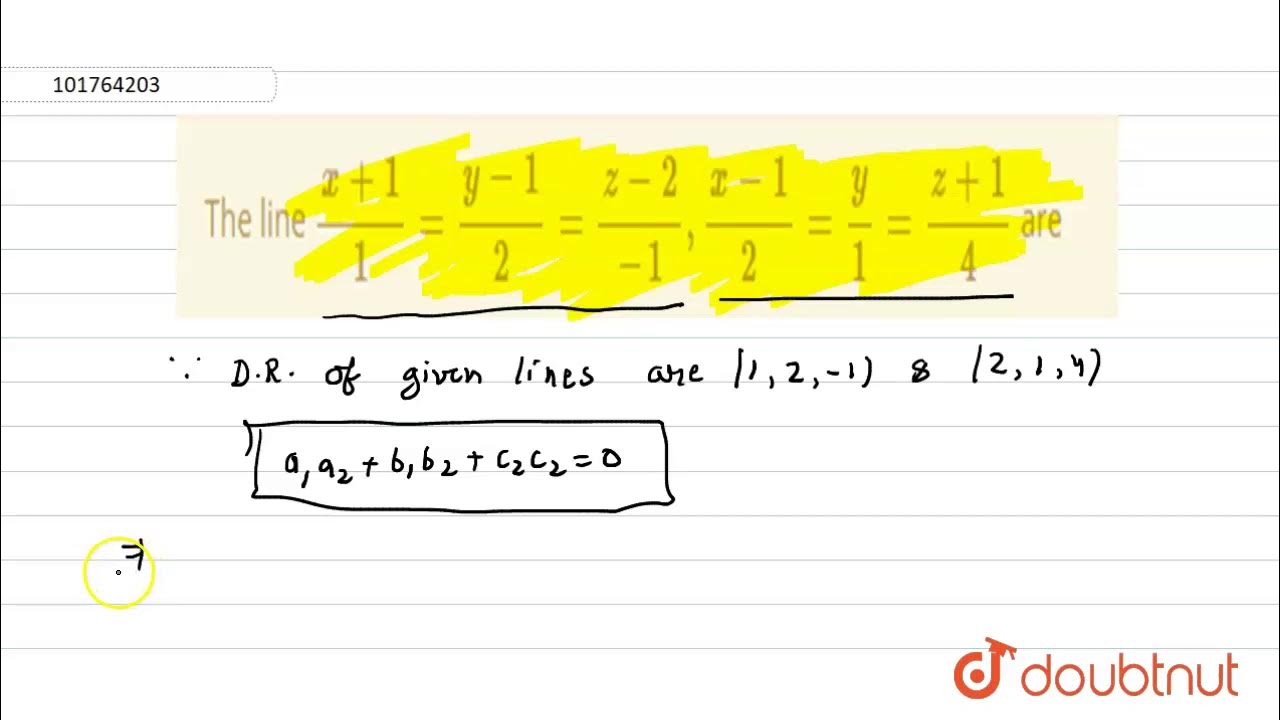 101764203
The line \frac{x+1}{1} = \frac{y-1}{2} = \frac{z-2}{-1}, \frac{x-1}{2} = \frac{y}{1} = \frac{z+1}{4} are
∵ D.R. of given lines are (1, 2, -1) & (2, 1, 4)
a₁a₂ + b₁b₂ + c₂c₂ = 0
⇒
doubtnut